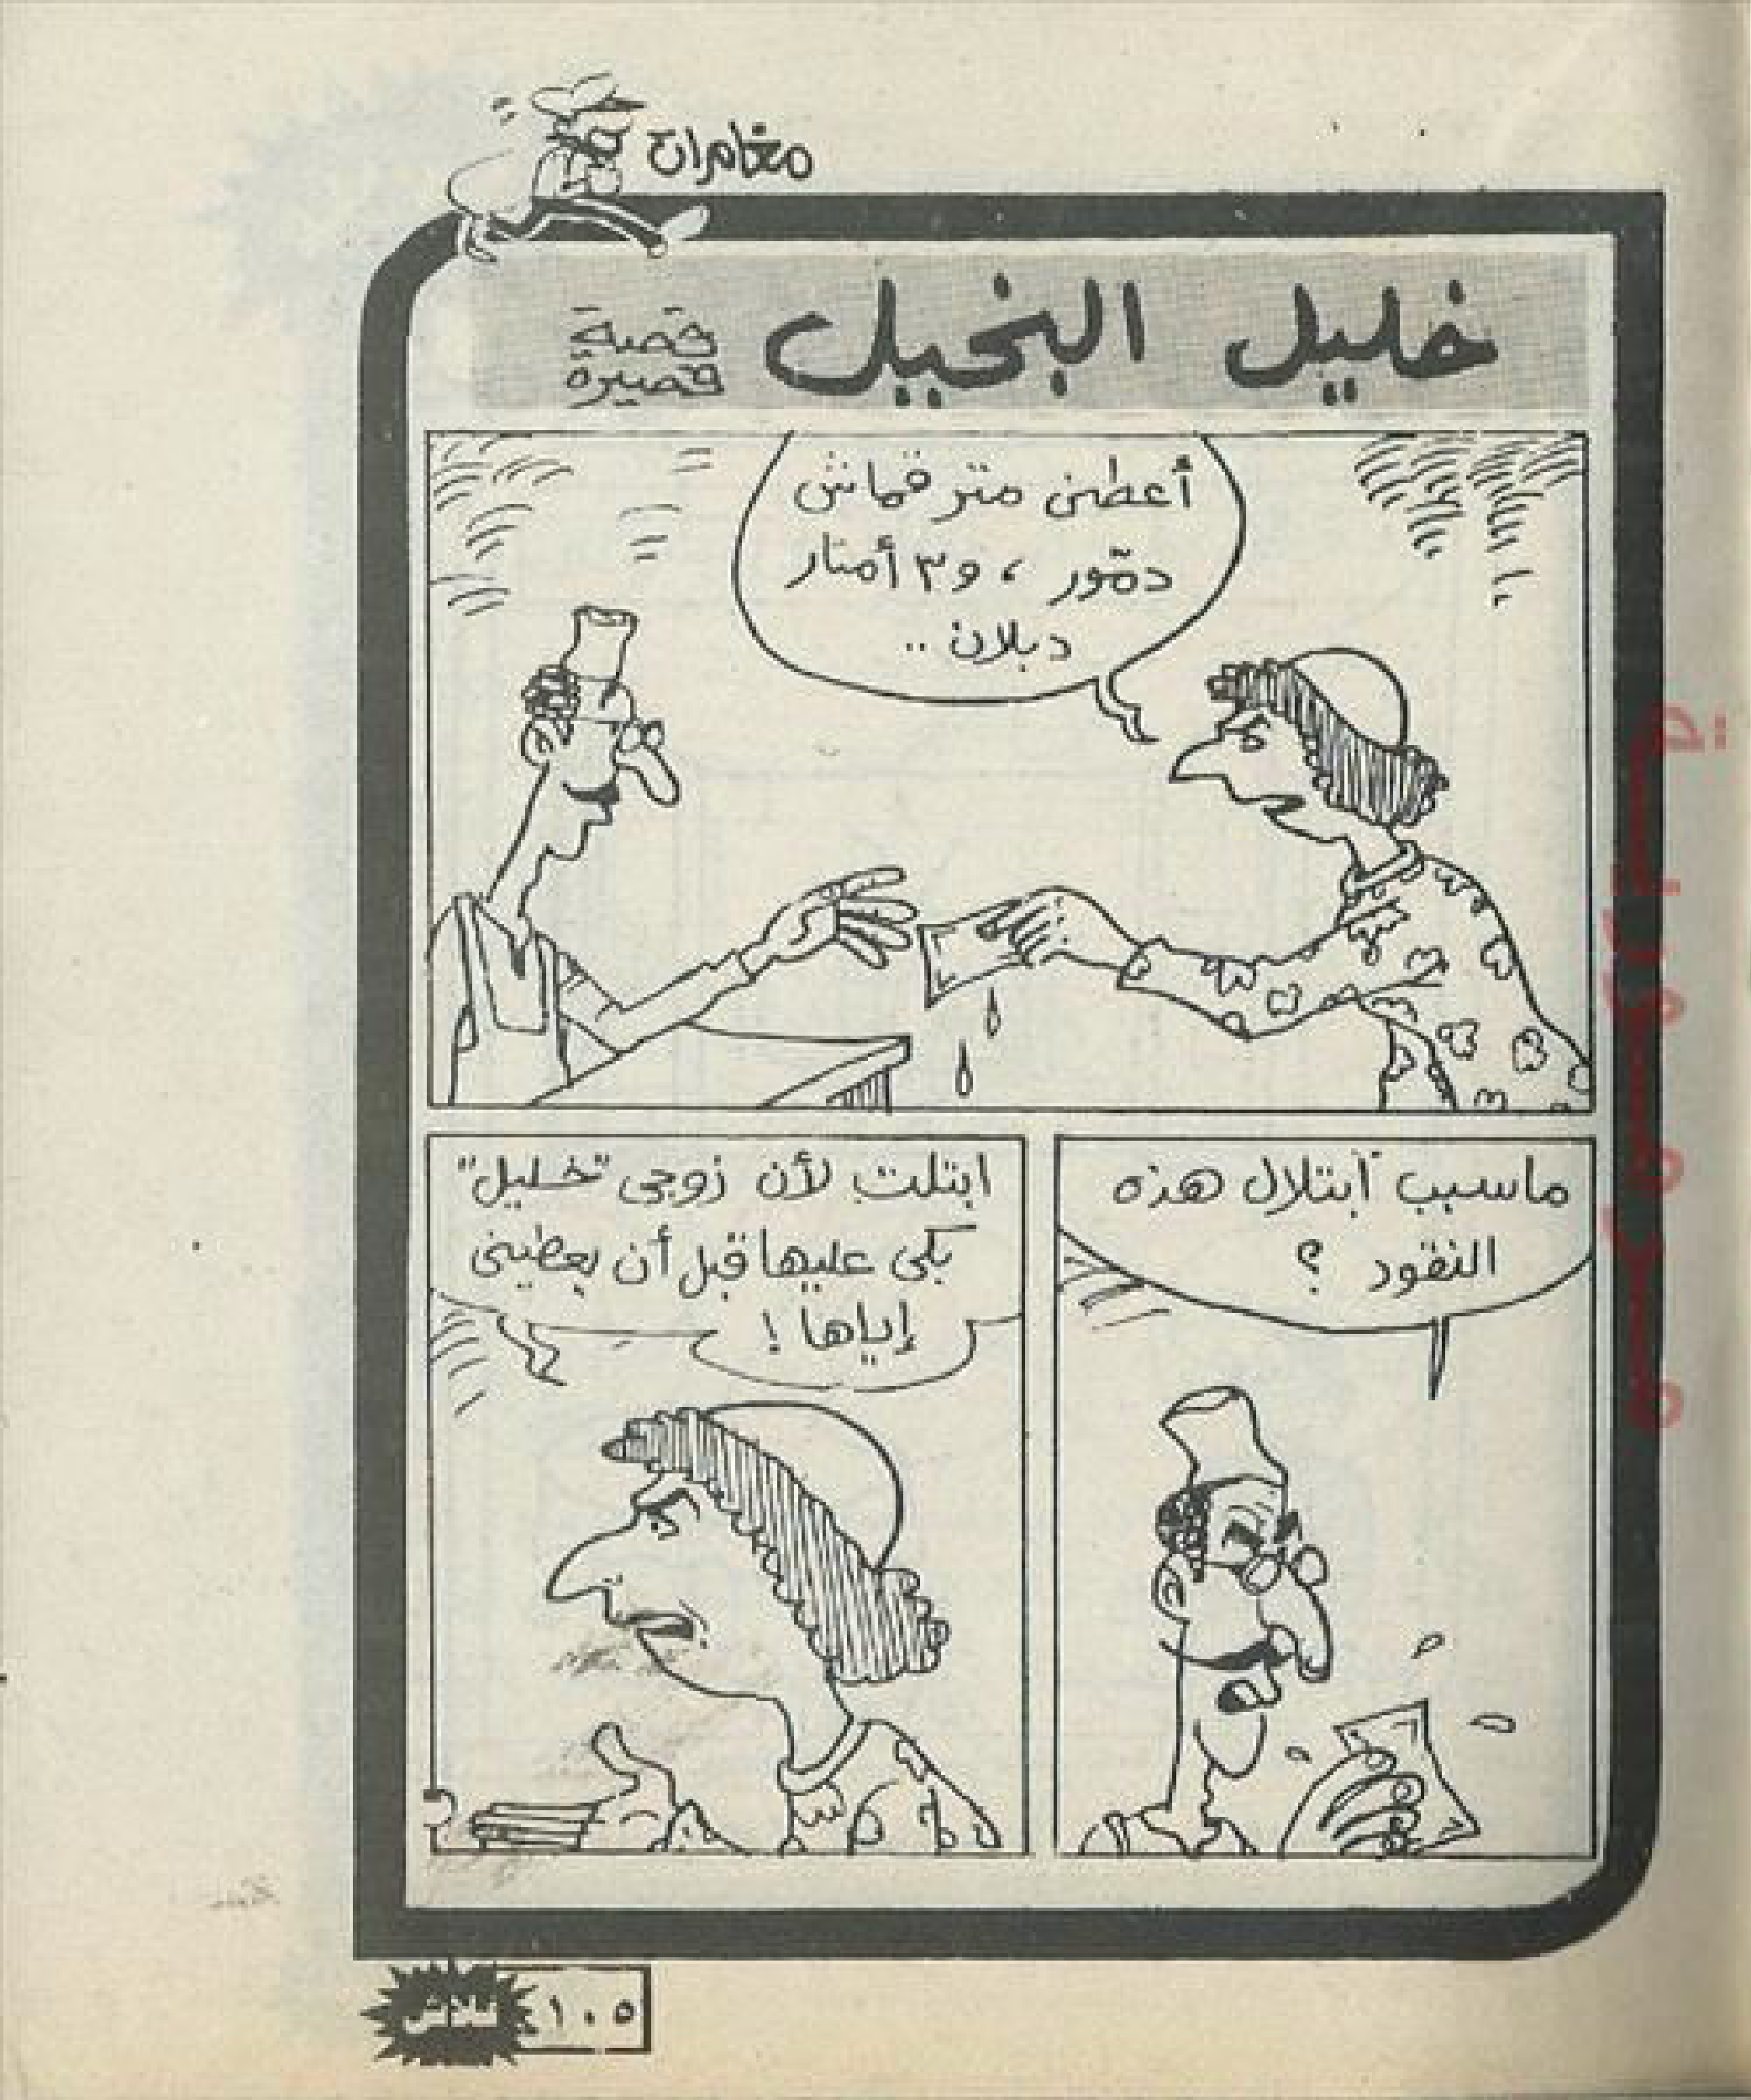 مغامرات
خليل البخيل
قصة
قصيرة
أعطنى متر قماش
دمّور ، و٣ أمتار
دبلان ..
ماسبب ابتلال هذه
النقود ؟
ابتلت لأن زوجى "خليل"
بكى عليها قبل أن يعطينى
إياها !
فلاش
١٠٥